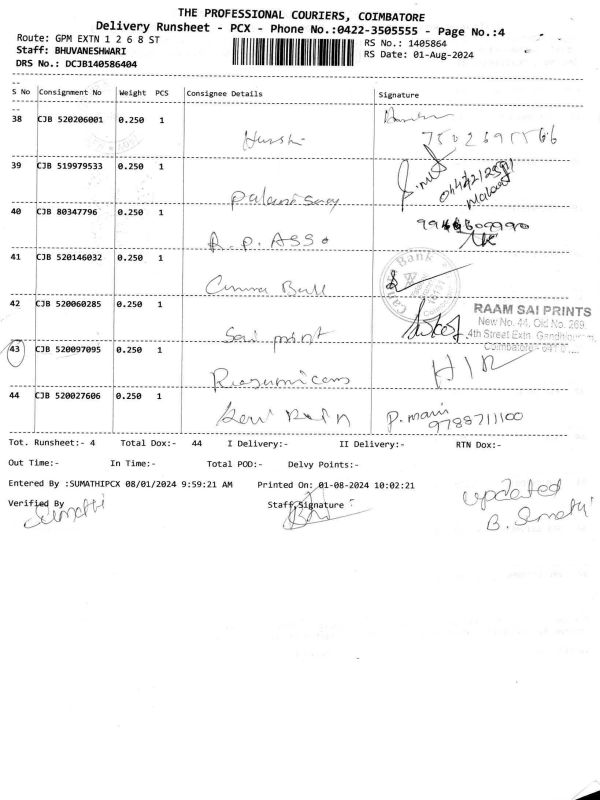 THE PROFESSIONAL COURIERS, COIMBATORE
Delivery Runsheet - PCX - Phone No.:0422-3505555 - Page No.:4
Route: GPM EXTN 1 2 6 8 ST
RS No.: 1405864
Staff: BHUVANESHWARI
RS Date: 01-Aug-2024
DRS No.: DCJB140586404
S No Consignment No Weight PCS Consignee Details Signature
38 CJB 520206001 0.250 1
39 CJB 519979533 0.250 1
Palanisamy
40 CJB 80347796 0.250 1
R.P. ASSO
41 CJB 520146032 0.250 1
Canara Bank
42 CJB 520060285 0.250 1
Sai print
RAAM SAI PRINTS
New No. 44, Old No. 269,
4th Street Extn. Gandhipuram,
Coimbatore - 641 0
43 CJB 520097095 0.250 1
44 CJB 520027606 0.250 1
P. mani
9788711100
Tot. Runsheet:- 4 Total Dox:- 44 I Delivery:- II Delivery:- RTN Dox:-
Out Time:- In Time:- Total POD:- Delvy Points:-
Entered By :SUMATHIPCX 08/01/2024 9:59:21 AM Printed On: 01-08-2024 10:02:21
Verified By Staff Signature :
Sumathi
updated
B. Sumathi